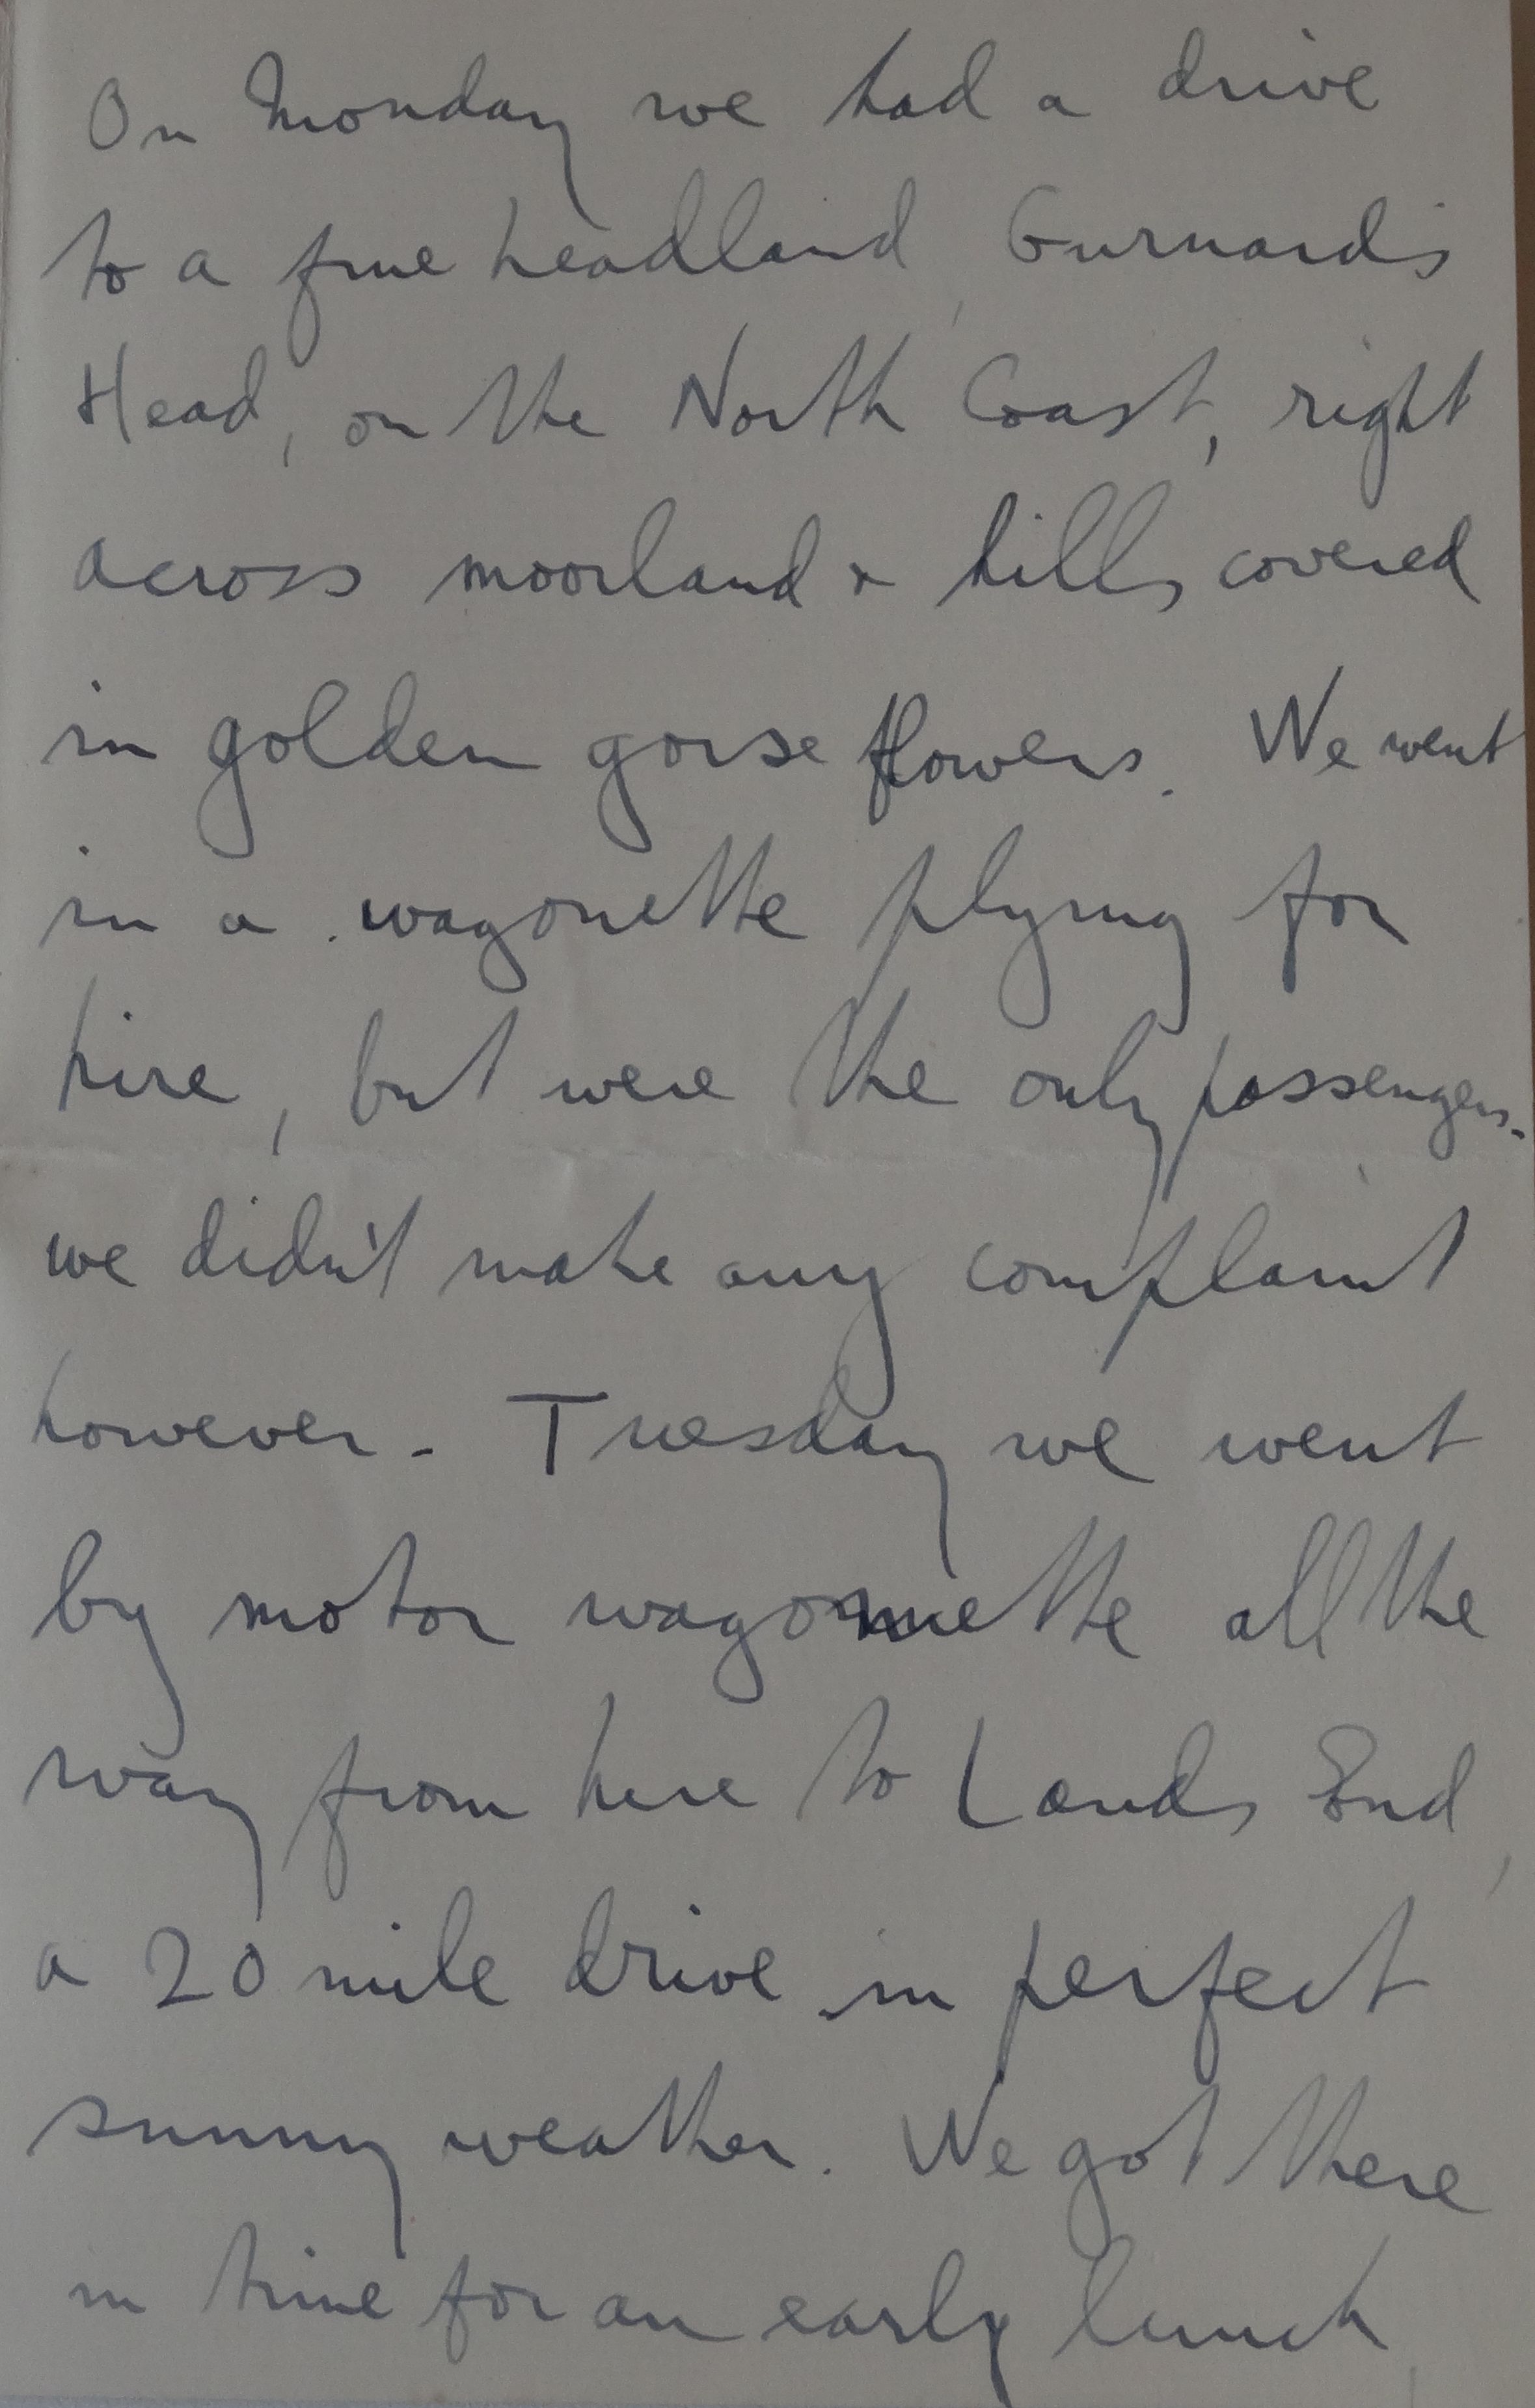 On Monday we had a drive
to a fine headland, Gurnard's
Head, on the North Coast, right
across moorland & hills covered
in golden gorse flowers. We went
in a wagonette plying for
hire, but were the only passengers.
we didn't make any complaint
however. Tuesday we went
by motor wagonnette all the
way from here to Lands End,
a 20 mile drive in perfect
sunny weather. We got there
in time for an early lunch,